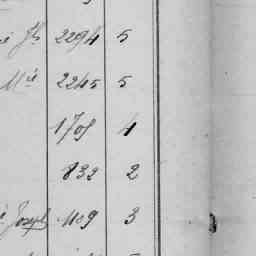 Jh 2294 5
Mie 2245 5
1705 4
832 2
Joseph 1109 3